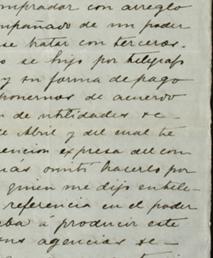 omprador con arreglo
ompañado de un poder
se tratar con terceros.
o se hizo por telégrafo
y su forma de pago
ponernos de acuerdo
n de utilidades se
e Abril y del cual te
encion expresa del con
más omití hacerlos por
quien me dijo en tele
referencia en el poder
aba á producir este
ons agencias se